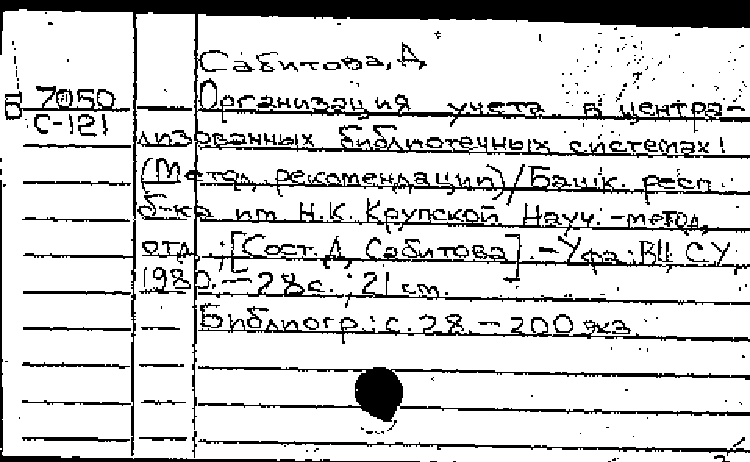 Сабитова, Д.
Б 7050
С-121
Организация учета в центра-
лизованных библиотечных системах:
(Метод. рекомендации) / Башк. респ.
б-ка им. Н.К. Крупской. Науч.-метод.
отд.; [Сост. Д. Сабитова]. – Уфа: ВЦ СУ,
1980. – 28 с.; 21 см.
Библиогр.: с. 28. – 200 экз.